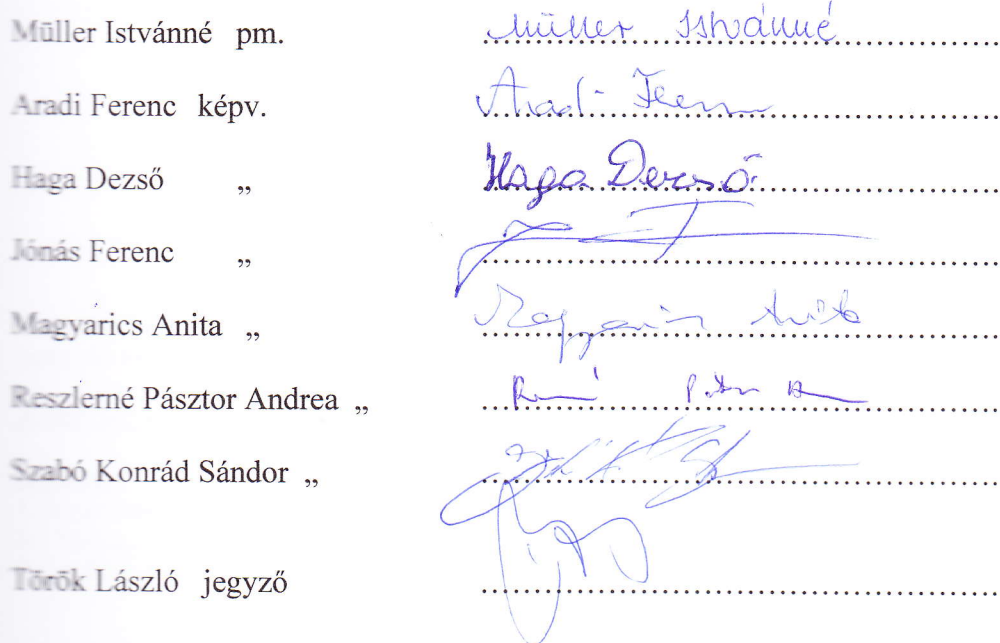 Müller Istvánné pm. Müller Istvánné
Aradi Ferenc képv. Aradi Ferenc
Haga Dezső „ Haga Dezső
Jónás Ferenc „
Magyarics Anita „ Magyarics Anita
Reszlerné Pásztor Andrea „
Szabó Konrád Sándor „
Török László jegyző